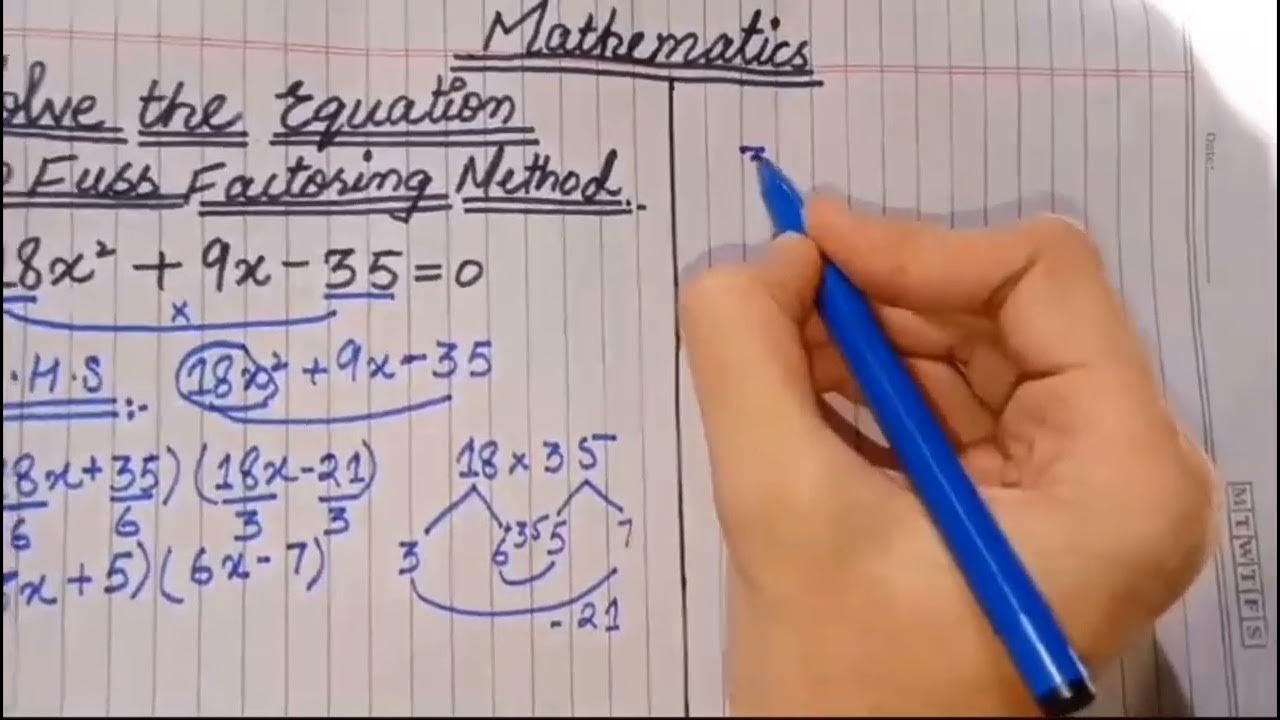 Mathematics
olve the Equation
Fuss Factoring Method.
18x² + 9x - 35 = 0
x
.H.S :-
18x² + 9x - 35
8x + 35) (18x - 21)
6 6 3 3
x + 5) (6x - 7)
18 x 35
3 6 5 7
35
-21
Date:
M T W T F S